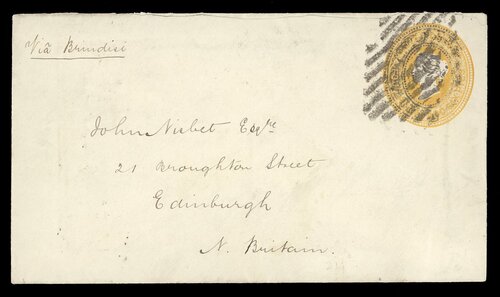 Viâ Brindisi
John Nisbet Esqre
21 Broughton Street
Edinburgh
N. Britain.